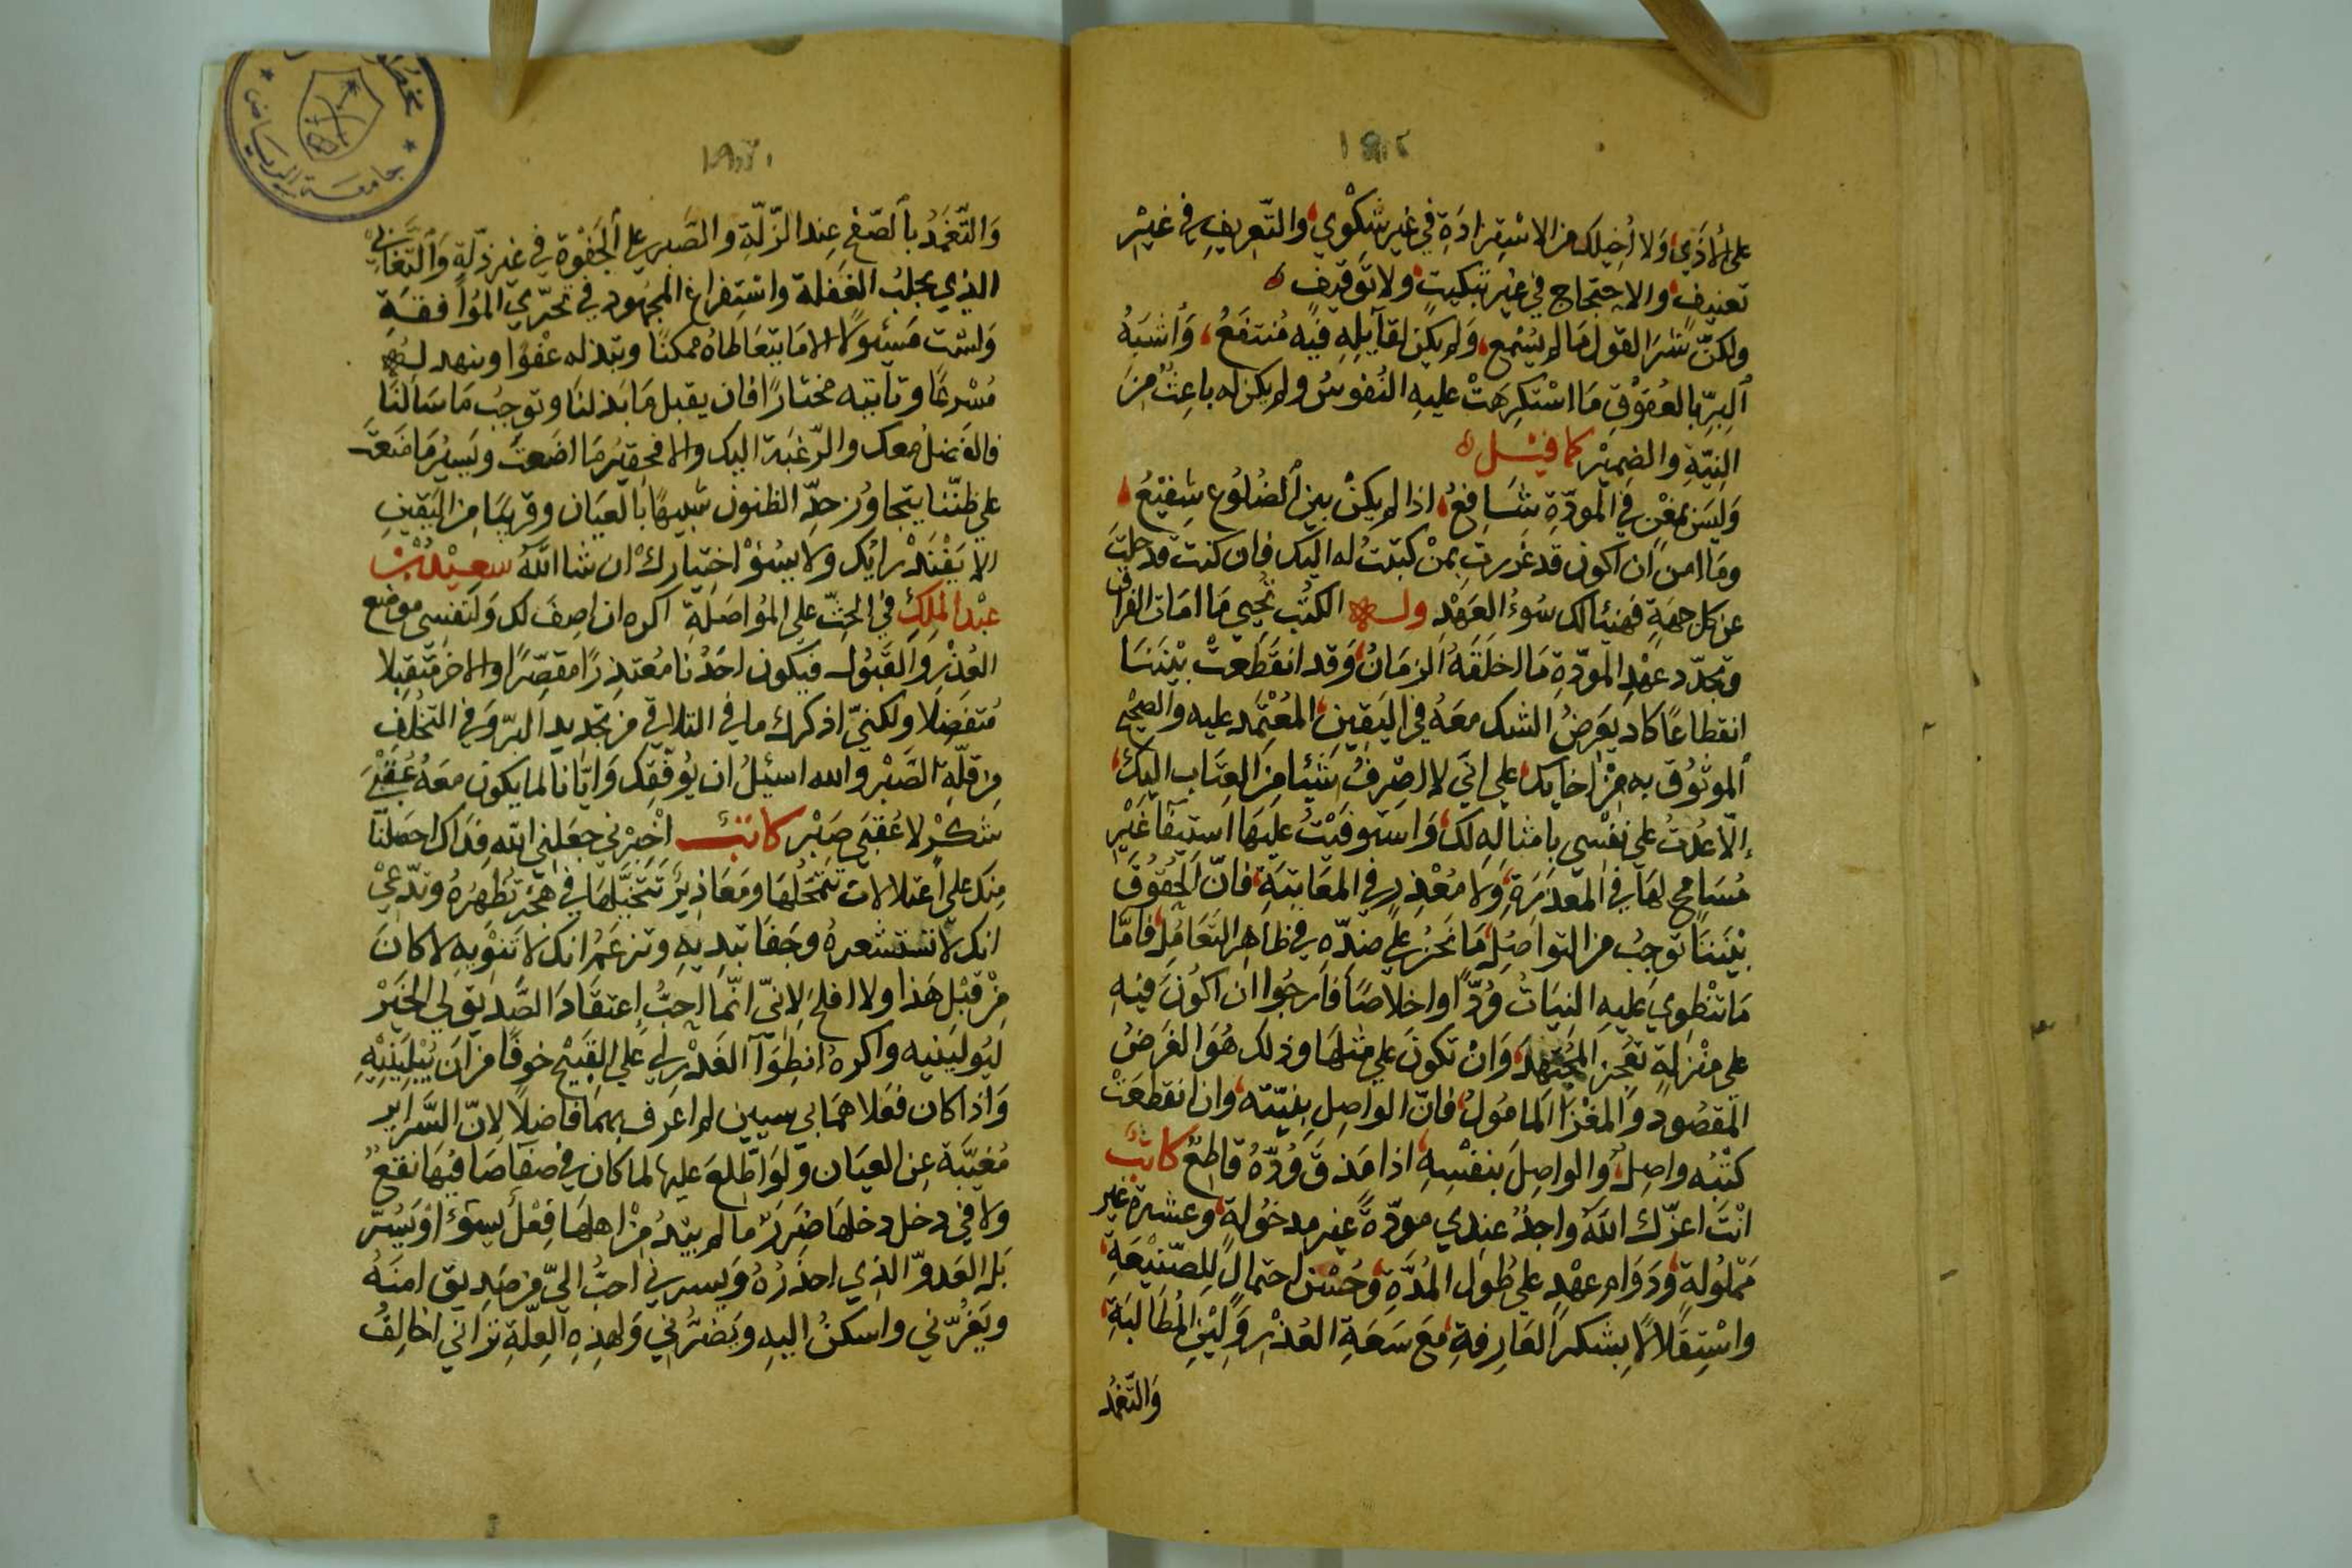 على الأذَى وَلا أُخِيلك من الاسْتِزادَةِ في غَير شكْوي والتّعريفِ في غيْر
تعنيف والاحتجاج في غير تبكيت ولا توقيف
ولكنّ شرّ القول مَا لم يُسْمع وَلم يكن لقآيله فيه مُنتفعُ وَأشبَهُ
البِرِّ بالعقوُق مَا اسْتكرهَتْ عليهِ النُفوسُ ولم يكن له باعِثٌ مِنَ
النِيّةِ والضمِيْر كما قيْل
وَليسَ بمغْنٍ في المودّةِ شَافعُ اذا لم يكنْ بين الضلُوُع شفِيْعُ
ومَا امن ان اكون قد غَررت بمنْ كتبتُ له اليك فان كنت قد حلت
عن كل جهةٍ فهنيئا لك سُوءُ العَهْدِ وله الكتُب تُحيي مَا امَات الفراق
وتجدّد عهْدِ المودّةِ مَا اخلَقَهُ الزمَانُ وَقد انقَطَعتْ بيْننَا
انقطاعًا كاد يعَرضُ الشك معَهُ في اليَقين المعْتمد عليه والصحيح
الموثوُق به مِنْ اخايك على انّي لا اصْرِفُ شيْئا مِنَ العِتَاب اليكَ
إلّا عُدتُ على نفْسِي بامثالهِ لك وَاستوفيْتُ عليَها استيفآ غيْر
مُسَامح لهَا في المعذرَةِ وَلا مُعْذِر في المعَاتبَةِ فانّ الحُقوُقَ
بيْننَا توجبُ من التواصُلِ مَا نَحْنُ على ضدّهِ في ظاهِر التعَامُلِ فامّا
مَا تنْطوِي عَليهِ النيَاتُ وُدًّا واخلاصًا فأرجُوا ان اكونَ فيْهِ
على منْزلةٍ تعجز المجتهد وَانْ تكونَ علي مثلهَا وذلك هُوَ الغَرَضُ
المقصُود وَالمغْزَا المامُولُ فانّ الواصِل بنيّته وان انقطعَتْ
كتبُه واصِلٌ وَالواصِلَ بنفْسِهِ اذا مَذقَ وُدّهُ قاطِعٌ كاتبٌ
انْتَ اعزّك اللّه واجدُ عندِي مودّةً غير مدخُولةٍ وعشرة غير
مَملُولةٍ وَدَوَام عهْدٍ على طُول المُدّةِ وَحُسْن احتمالٍ لِلصّنِيْعَةِ
واسْتِقلالًا بشكر العَارفةِ معَ سَعَةِ العُذْر وَليْن المُطَالبَةِ
وَالتّغمُد
وَالتَّغَمُّدُ بالصّفح عِند الزّلّةِ والصَّبر على الجفْوةِ في غير ذلّةٍ وَالتَّغَابي
الذي يجلبُ الغفلة واسْتِفراغ المجهُود في تحرّي الموُافقَةِ
وَلسْت مَسئولًا الا مَا يتعَاطاهُ ممكنًا وتبذله عفْوًا وتنهد له
مُسْرعًا وتاتيه مختارًا فان يقبل مَا بَذلنَا وتوجبُ مَا سَألنَا
على ظنّنا يتجاوُز حدّ الظنون شبيهًا بالعيَان وقريبًا مِن اليَقين
الا يَفْنَدْ رايُك ولا يسُؤْ اختيارك ان شا اللّه سعيْدُ بن
عبْد المَلِك في الحثّ على المؤاصَلَةِ اكره ان اصِفَ لك وَلنَفسِي موضع
العُذْرِ وَالقَبُول فيكون احَدُنا مُعتذِرًا مقصّرًا والاخر متقبلا
مُتفضِلا ولكنيّ اذكرك ما في التلاقي من تجديد البرّ وَفي التخلف
مِن قلّةِ الصَبْر والله اسئلُ ان يُوَفّقَك وَايّانا لما يكون معَهُ عُقبَى
شَكْرٍ لا عُقبَى صَبْر كاتبٌ اخْبرني جعَلِني اللّه فدَاك احصَلنَا
منك على اعتلالات تتمحّلُهَا ومَعَاذِيرَ تتخيّلهَا في هَجْرٍ تُظهِرَهُ وتدّعيْ
انك لا تستشعرهُ وجَفَا تبديهِ وتزعَمُ انك لا تنوْيهِ لا كانَ
مِنْ قبْلِ هَذا ولا افلَحَ لِانيّ انّما احِبُّ إعتقَادَ الصَّديق لي الخيْر
ليُوليَنيه واكرهُ انطِوآ الغَدْر لي علي القبيْح خوفًا من اَن يُبْليَنيْهِ
وَاذا كان فعَلاهمَا بي سيين لم اعرف بهمَا فاضِلًا لانّ السَّراير
مُغيَّبة عن العيَان وَلوَاطّلعَ عليها لما كان في صفآ صَافيْها نفعٌ
ولا في دخل دخلهَا ضَرَرٌ مالم يبْدُ مِنْ اهلهَا فِعْلٌ يسوءُ اوْ يَسُرّ
بَل العَدوّ الذِي احذرُهُ وَيسرني احبُّ اليّ من صَدِيق امنَهُ
ويَغُرّني واسكنُ اليهِ ويَضرُّني وَلهذِهِ العِلّةِ تراني اخالِفُ
جامعة الرياض